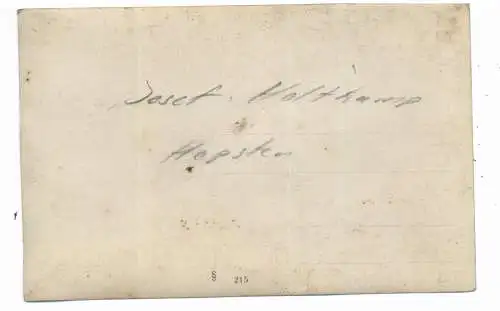 Josef. Holtkamp
Hopsten
§ 215